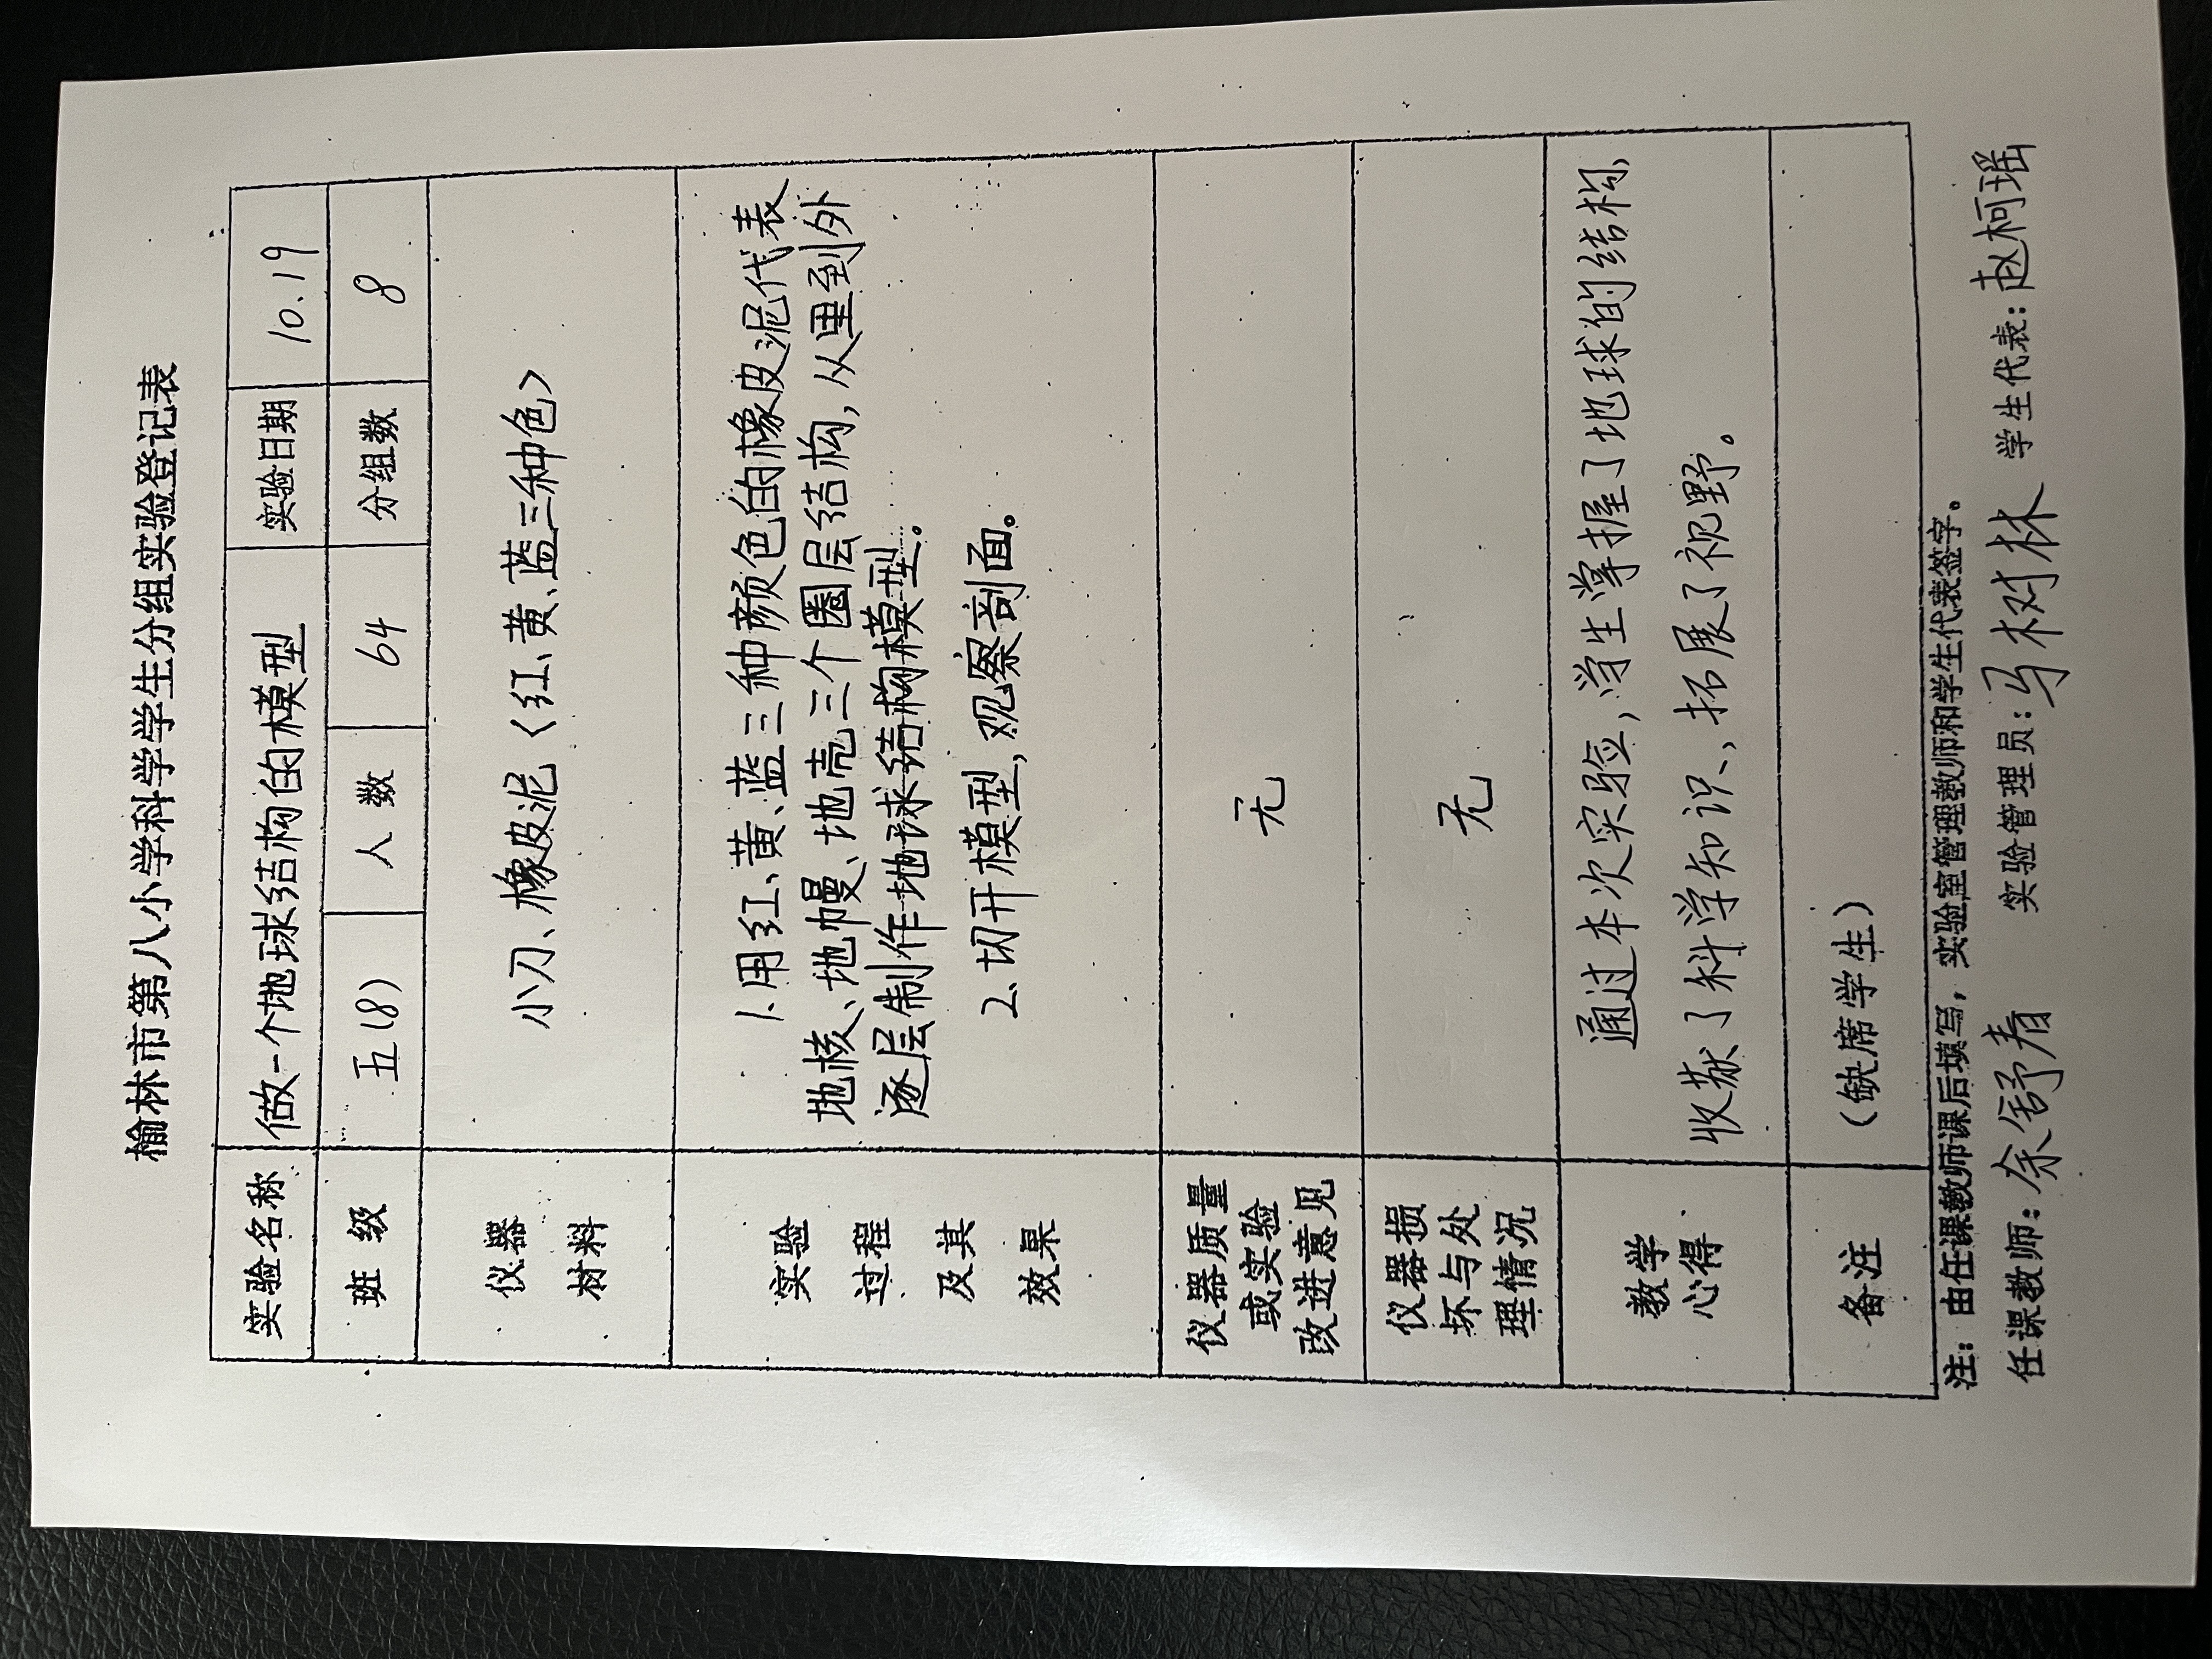 榆林市第八小学科学学生分组实验登记表
实验名称 做一个地球结构的模型 实验日期 10.19
班级 五(8) 人数 64 分组数 8
仪器
材料
小刀、橡皮泥〈红、黄、蓝三种色〉
实验
过程
及其
效果
1.用红、黄、蓝三种颜色的橡皮泥代表
地核、地幔、地壳三个圈层结构,从里到外
逐层制作地球结构模型。
2.切开模型,观察剖面。
仪器质量
或实验
改进意见
无
仪器损
坏与处
理情况
无
教学
心得
通过本次实验,学生掌握了地球的结构,
收获了科学知识、拓展了视野。
备注
(缺席学生)
注:由任课教师课后填写,实验室管理教师和学生代表签字。
任课教师:余舒春 实验管理员:马树林 学生代表:赵柯瑶